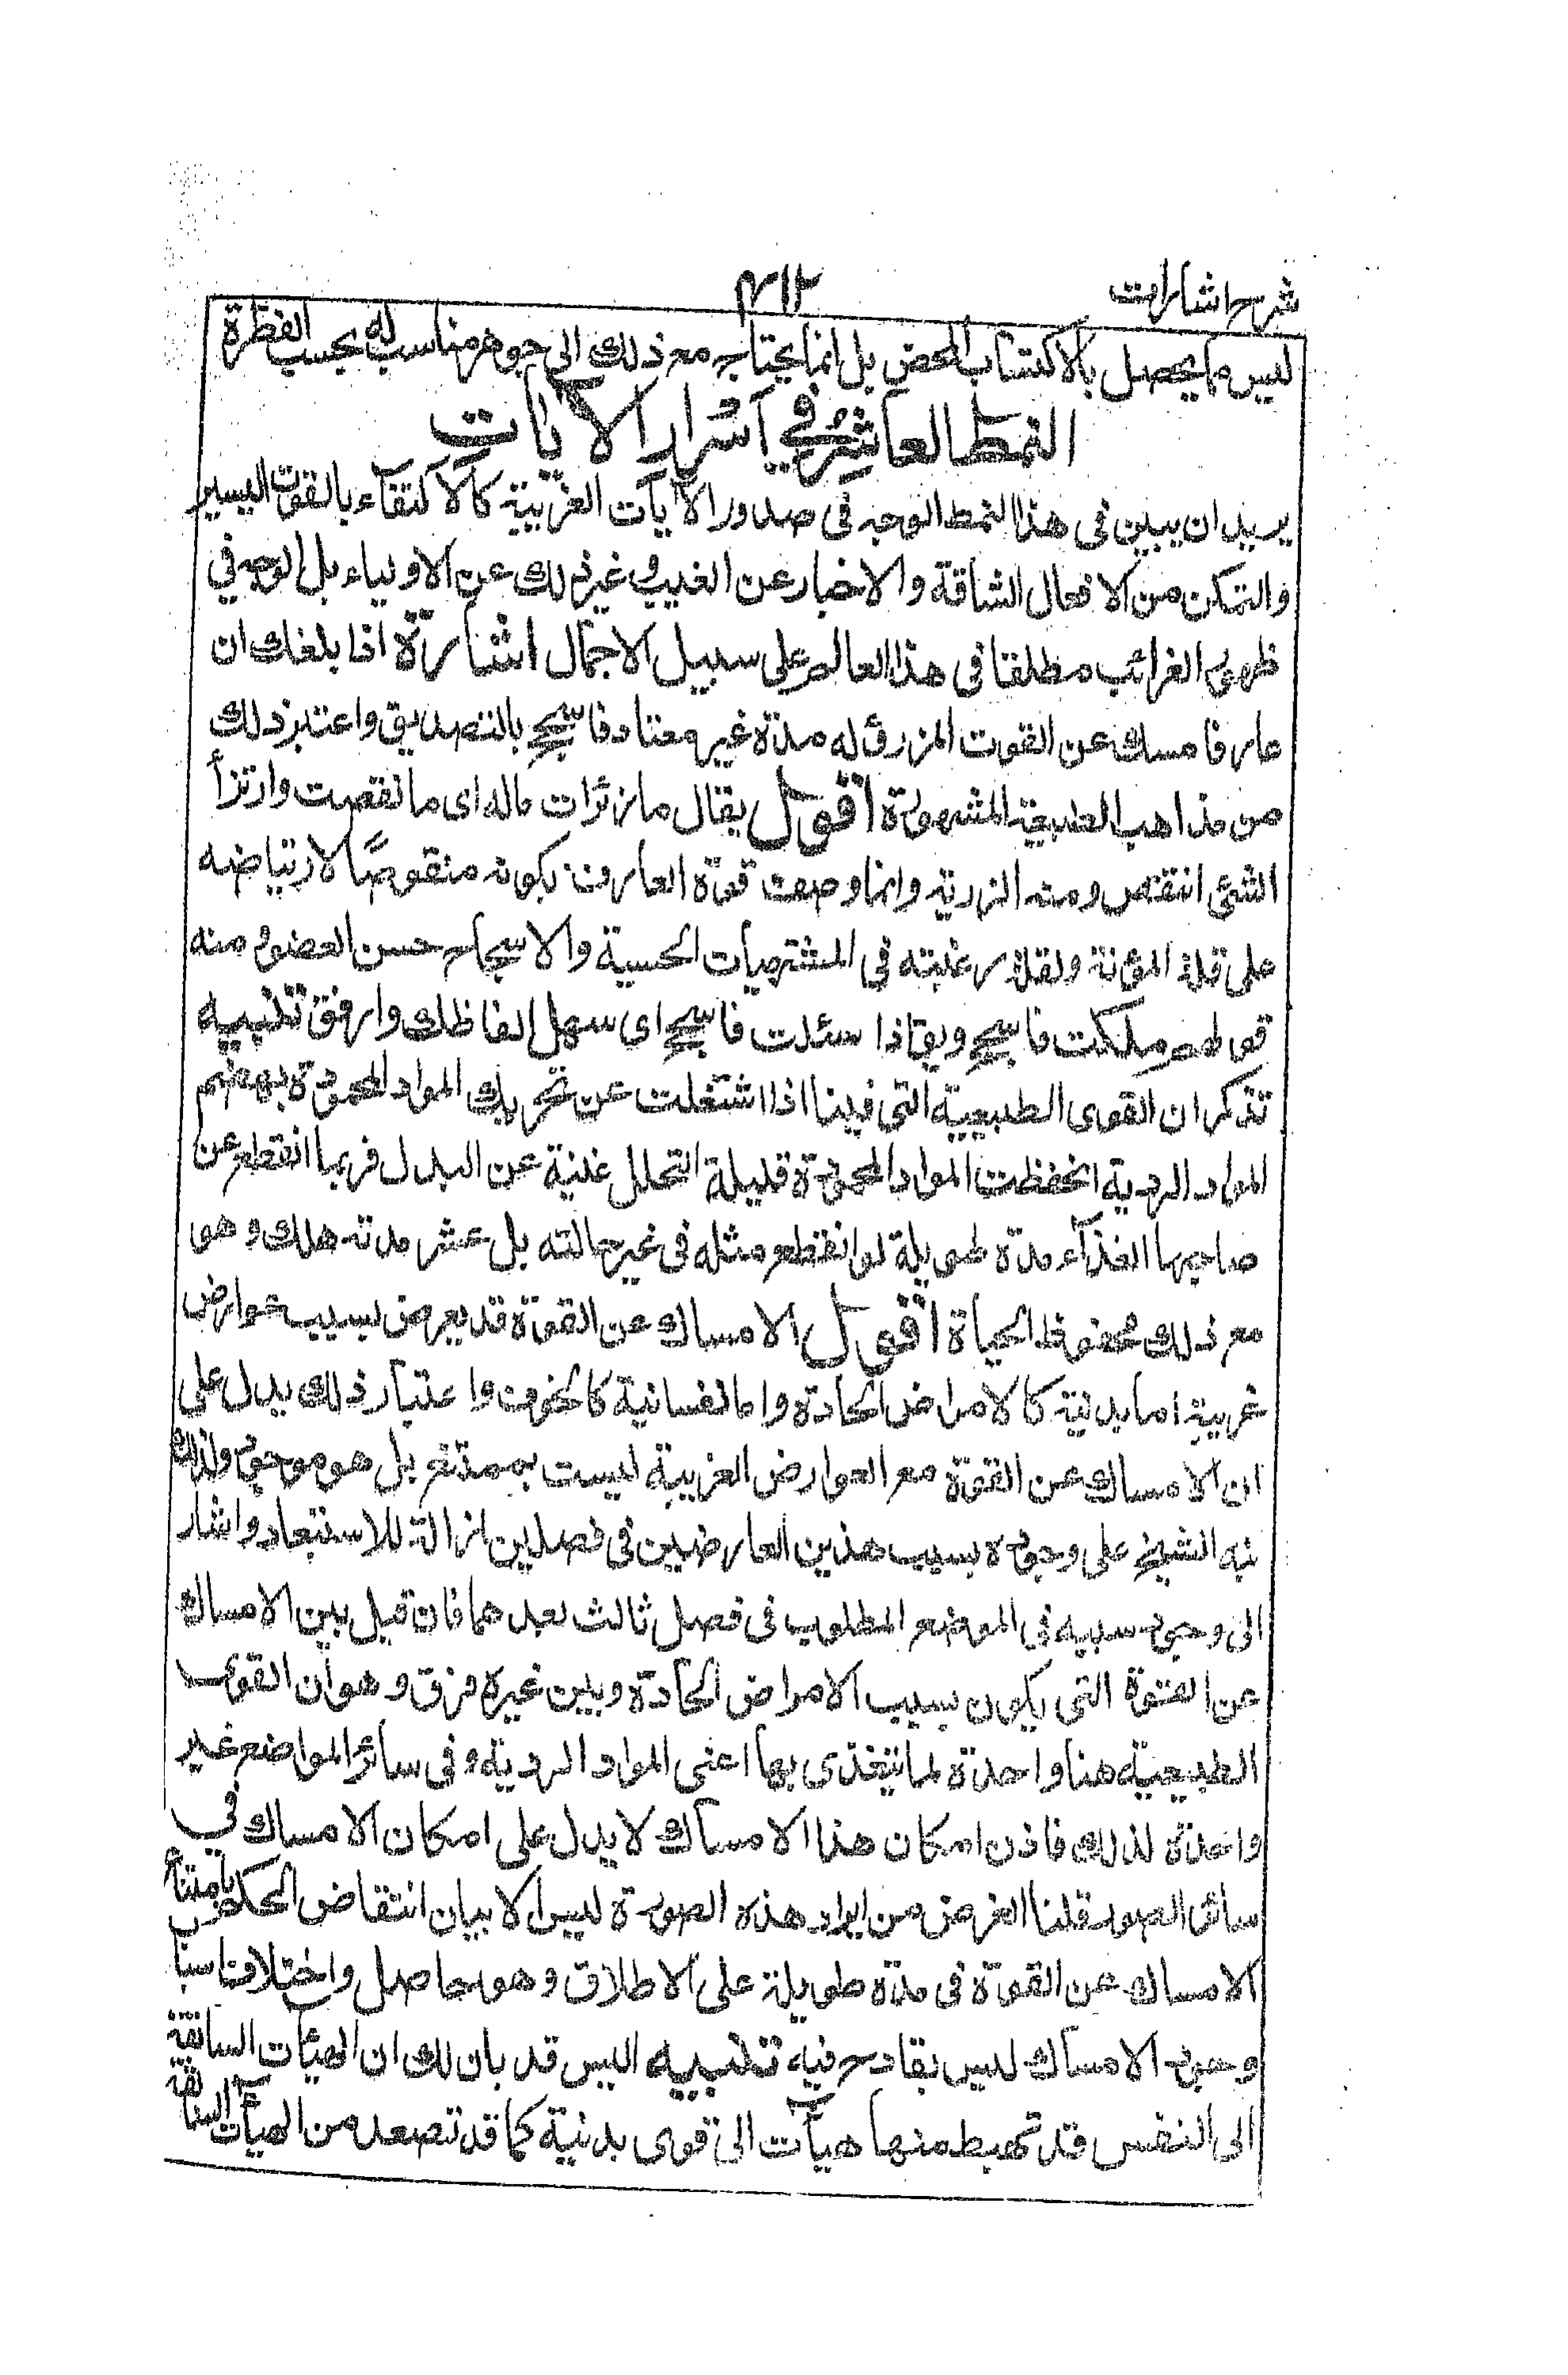 شرح اشارات
٣١٢
ليس مما يحصل بالاكتساب المحض بل انما يحتاج مع ذلك الى جوهر مناسب له بحسب الفطرة
النمط العاشر في اسرار الآيات
يريد ان يبين فى هذا النمط الوجه فى صدور الآيات الغريبة كالاكتفاء بالقوت اليسير
والتمكن من الافعال الشاقة والاخبار عن الغيب وغير ذلك عن الاولياء بل الوجه في
ظهور الغرائب مطلقا فى هذا العالم على سبيل الاجمال اشارة اذا بلغك ان
عارفا امسك عن القوت المرزؤ له مدة غير معتادة فاسجح بالتصديق واعتبر ذلك
من مذاهب الطبيعة المشهورة اقول يقال ما رزئات ماله اى ما نقصت وارتزأ
الشئ انتقص ومنه الرزية وانما وصف قوة العارف بكونه منقوصًا لارتياضه
على قلة المؤنة ولقلة رغبته فى المشتهيات الحسية والاسجاح حسن العضو منه
قولهم ملكت فاسجح ويق اذا سئلت فاسجح اى سهل الفاظك وارفق تنبيه
تذكر ان القوى الطبيعية التى فينا اذا اشتغلت عن تحريك المواد المحمودة بهضم
المواد الردية انحفظت المواد المحمودة قليلة التحلل غنية عن البدل فربما انقطع عن
صاحبها الغذآء مدة طويلة لو انقطع مثله فى غير حالته بل عشر مدته هلك وهو
مع ذلك محفوظ الحياة اقول الامساك عن القوة قد يعرض بسبب عوارض
غريبة اما بدنية كالامراض الحادة واما نفسانية كالخوف واعتبار ذلك يدل على
ان الامساك عن القوة مع العوارض الغريبة ليست بممتنع بل هو موجود ولذلك
نبه الشيخ على وجوده بسبب هذين العارضين فى فصلين ازالة للاستبعاد واشار
الى وجود سببه فى الموضع المطلوب فى فصل ثالث بعدهما فان قيل بين الامساك
عن القوة التى يكون بسبب الامراض الحادة وبين غيره فرق وهو ان القوى
الطبيعية هنا واجدة لما تتغذى بها اعنى المواد الردية وفى سائر المواضع غير
واجدة لذلك فاذن امكان هذا الامساك لا يدل على امكان الامساك في
سائر الصور قلنا الغرض من ايراد هذه الصورة ليس الا بيان انتقاض الحكم بامتناع
الامساك عن القوة فى مدة طويلة على الاطلاق وهو حاصل واختلاف اسباب
وجود الامساك ليس بقادح فيه تنبيه اليس قد بان لك ان الهيئات السابقة
الى النفس قد تهبط منها هيآت الى قوى بدنية كما قد تصعد من الهيآت السابقة